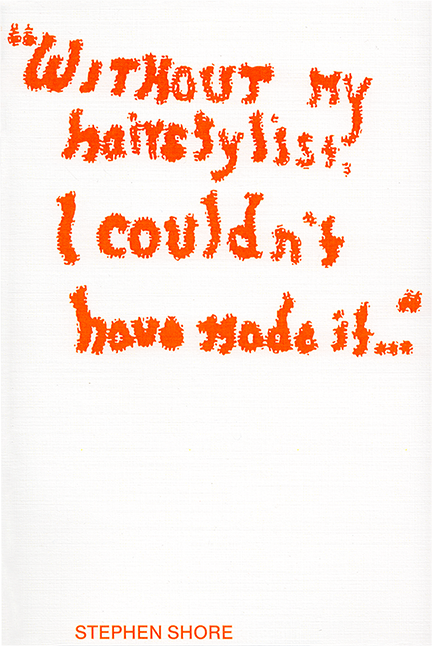 "WITHOUT my
hairstylist,
I couldn't
have made it..."
STEPHEN SHORE